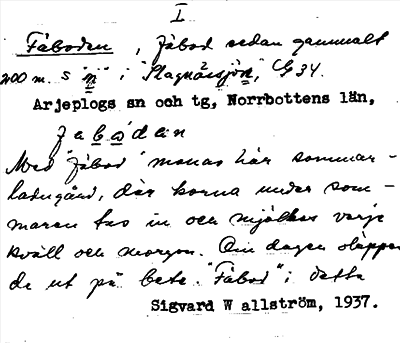 I
Fäboden, fäbod sedan gammalt
200 m. S "n" i "Slagnässjön", G 34.
Arjeplogs sn och tg, Norrbottens län,
fäbodän
Med "fäbod" menas här sommar-
ladugård, där korna under som-
maren tas in och mjölkas varje
kväll och morgon. Om dagen släppes
de ut på bete. "Fäbod" i detta
Sigvard W allström, 1937.